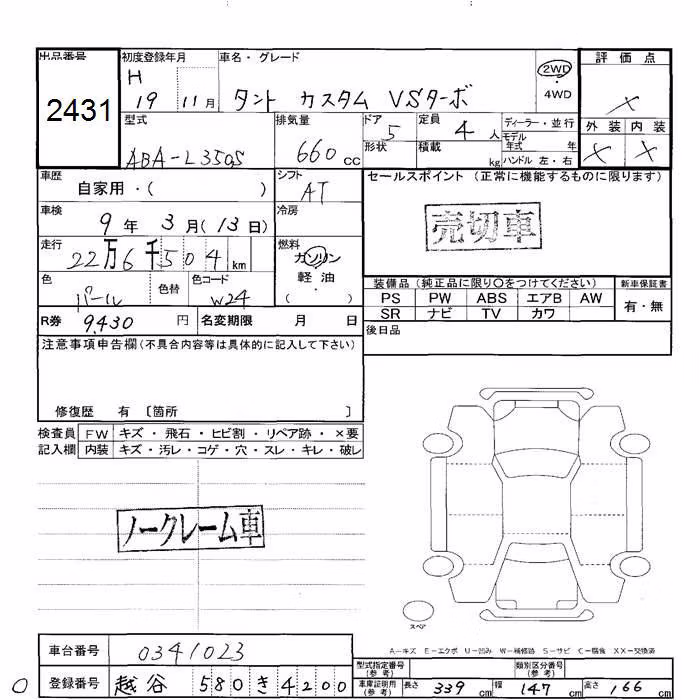 出品番号
2431
初度登録年月
H
19 11月
車名・グレード
タント カスタム VSターボ
2WD
・
4WD
評価点
×
外装 内装
× ×
型式
ABA-L350S
排気量
660 cc
ドア
5
形状
定員
4 人
積載
kg
ディーラー・並行
モデル
年式 年
ハンドル 左・右
車歴
自家用・( )
シフト
AT
車検
9年 3月(13日)
冷房
走行
22万6千504 km
燃料
ガソリン
軽・油
( )
色
パール
色替
色コード
W24
R券 9,430 円
名変期限 月 日
セールスポイント (正常に機能するものに限ります)
売切車
装備品 (純正品に限り○をつけてください)
PS PW ABS エアB AW
SR ナビ TV カワ
新車保証書
有・無
後日品
注意事項申告欄 (不具合内容等は具体的に記入して下さい)
修復歴 有 〔箇所 〕
検査員
記入欄
FW キズ・飛石・ヒビ割・リペア跡・×要
内装 キズ・汚レ・コゲ・穴・スレ・キレ・破レ
ノークレーム車
スペア
A-キズ E-エクボ U-凹み W-補修跡 S-サビ C-腐食 XX-交換済
車台番号 0341023
登録番号 越谷 580 き 4200
型式指定番号
(参考)
類別区分番号
(参考)
車庫証明用
(参考)
長さ 339 cm
幅 147 cm
高さ 166 cm